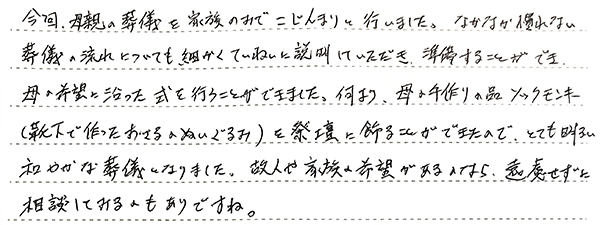 今回、母親の葬儀を家族のみでこじんまりと行いました。なかなか慣れない
葬儀の流れについても細かくていねいに説明していただき、準備することができ
母の希望に沿った式を行うことができました。何より、母の手作りの品ソックモンキー
(靴下で作ったおさるのぬいぐるみ)を祭壇に飾ることができたので、とても明るい
和やかな葬儀になりました。故人や家族の希望があるのなら、遠慮せずに
相談してみるのもありですね。